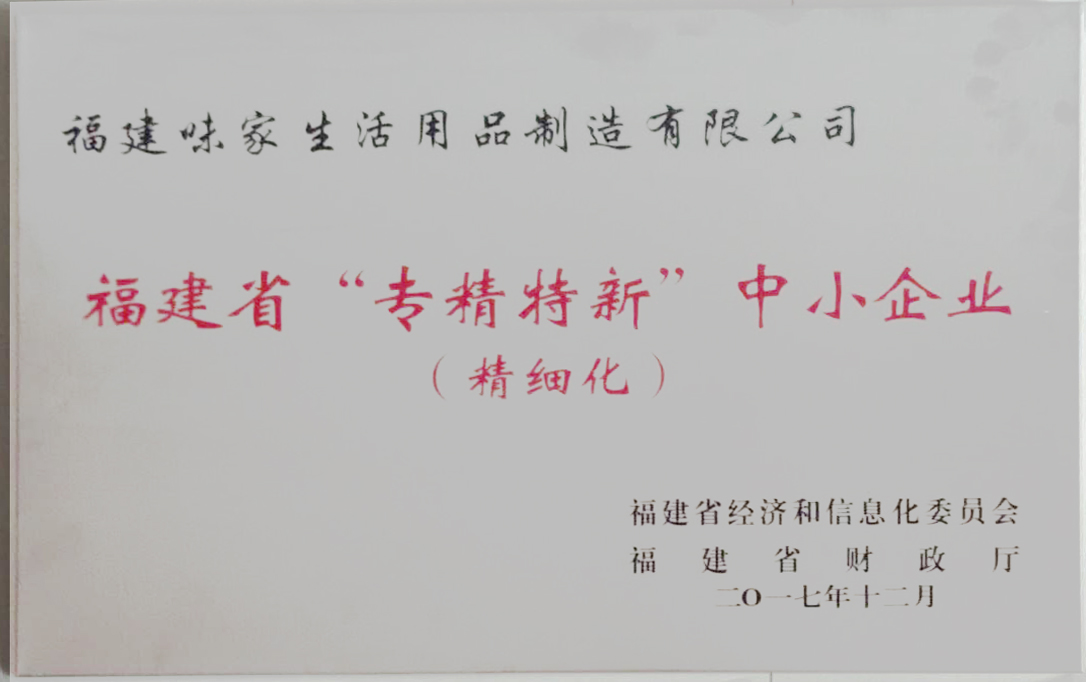 福建味家生活用品制造有限公司
福建省“专精特新”中小企业
（精细化）
福建省经济和信息化委员会
福建省财政厅
二〇一七年十二月